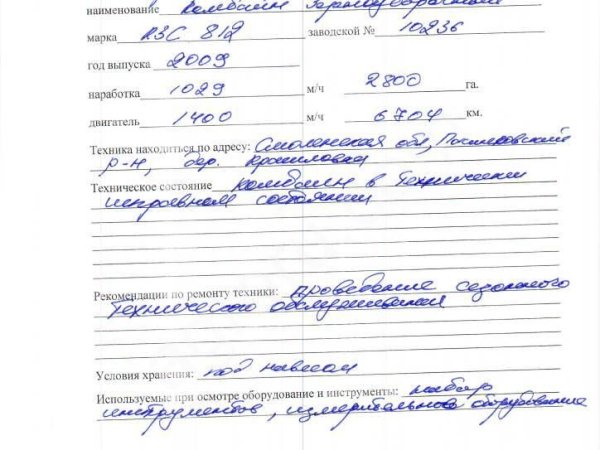 наименование Комбайн Зерноуборочный
марка КЗС 812 заводской № 10236
год выпуска 2009
наработка 1029 м/ч 2800 га.
двигатель 1400 м/ч 6704 км.
Техника находиться по адресу: Смоленская обл,
р-н, дер.
Техническое состояние Комбайн в техническом
исправном состоянии
Рекомендации по ремонту техники: проведение сезонного
технического обслуживания
Условия хранения: под навесом
Используемые при осмотре оборудование и инструменты: набор
инструментов, измерительного оборудования